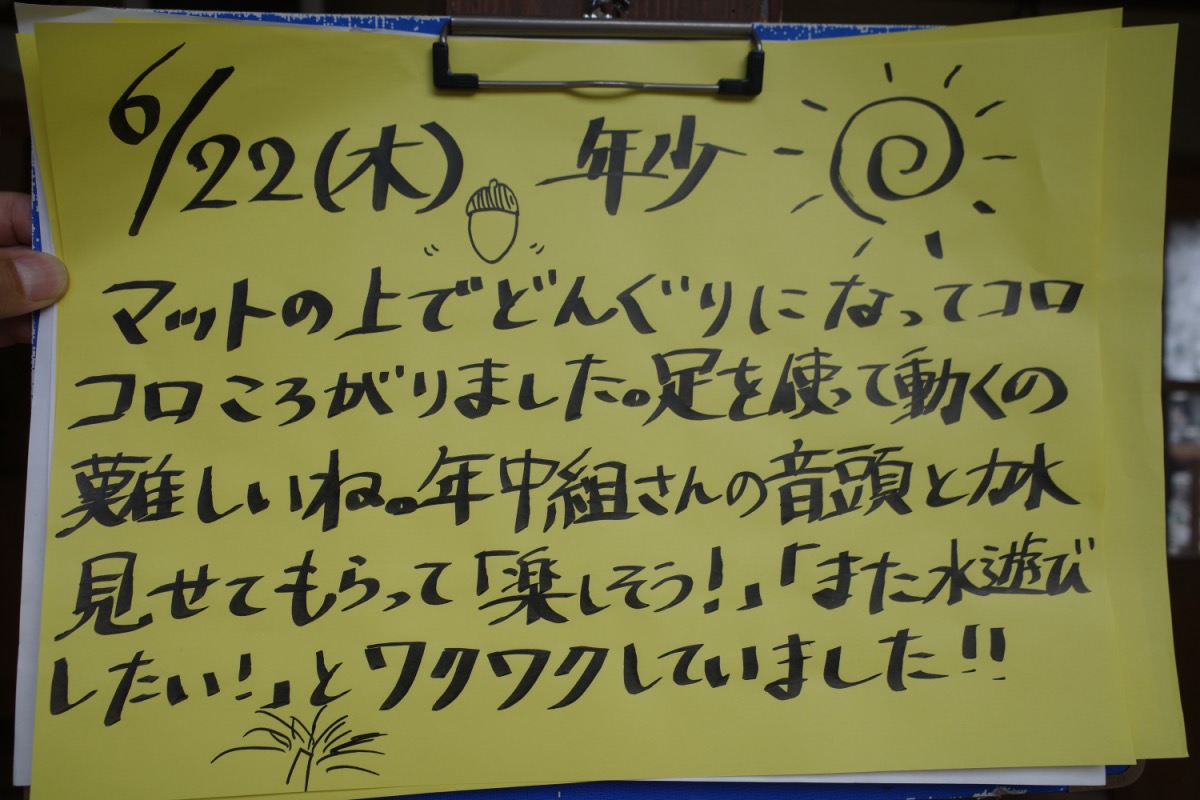 6/22(木) 年少
マットの上でどんぐりになってコロ
コロころがりました。足を使って動くの
難しいね。年中組さんの音頭と加水
見せてもらって「楽しそう!」「また水遊び
したい!」とワクワクしていました!!